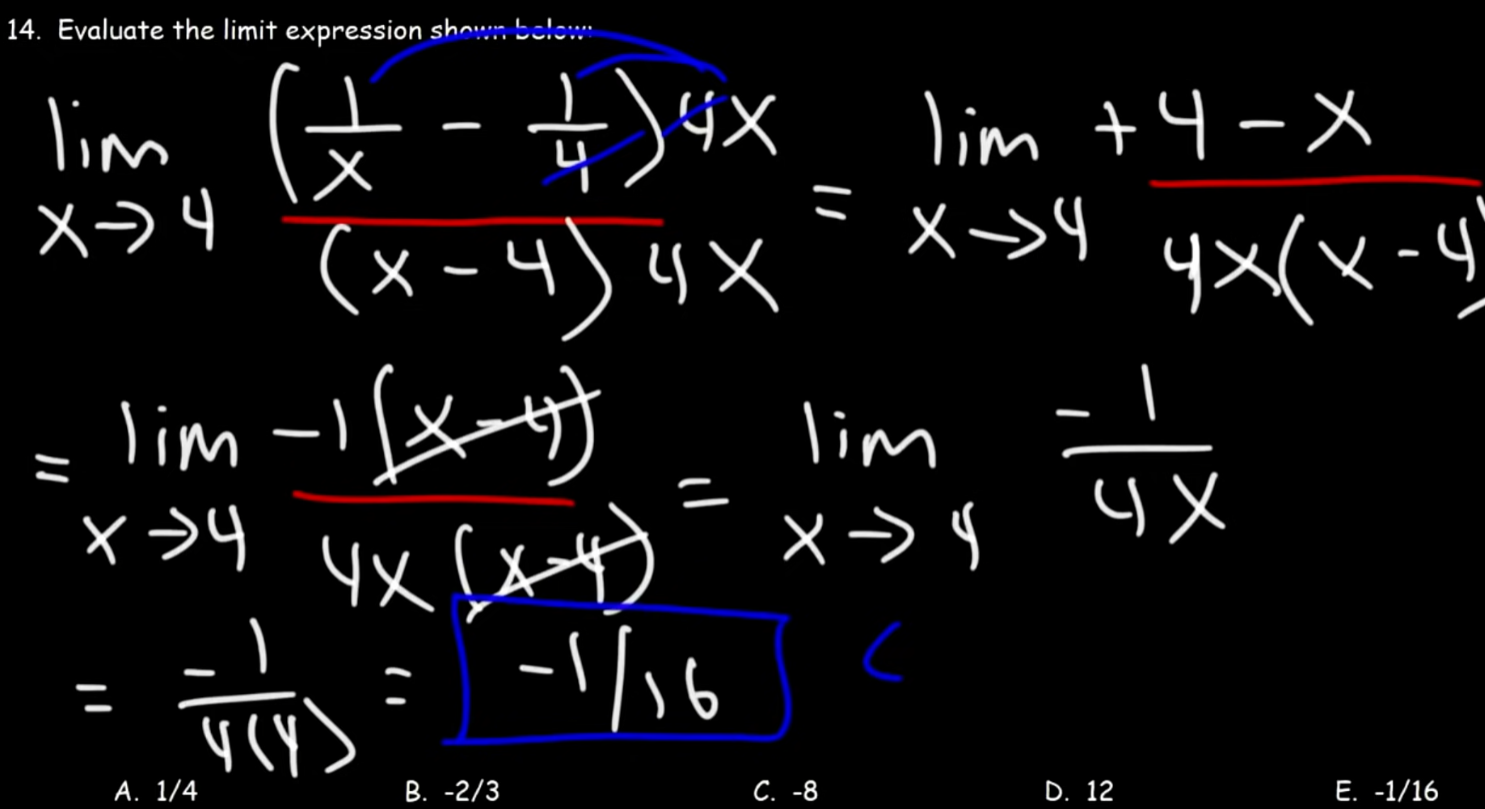 14. Evaluate the limit expression shown below:
lim x→4 ((1/x - 1/4) 4x) / ((x - 4) 4x) = lim x→4 (+4 - x) / (4x(x - 4))
= lim x→4 (-1(x - 4)) / (4x(x - 4)) = lim x→4 -1/(4x)
= -1/(4(4)) = -1/16 C
A. 1/4 B. -2/3 C. -8 D. 12 E. -1/16